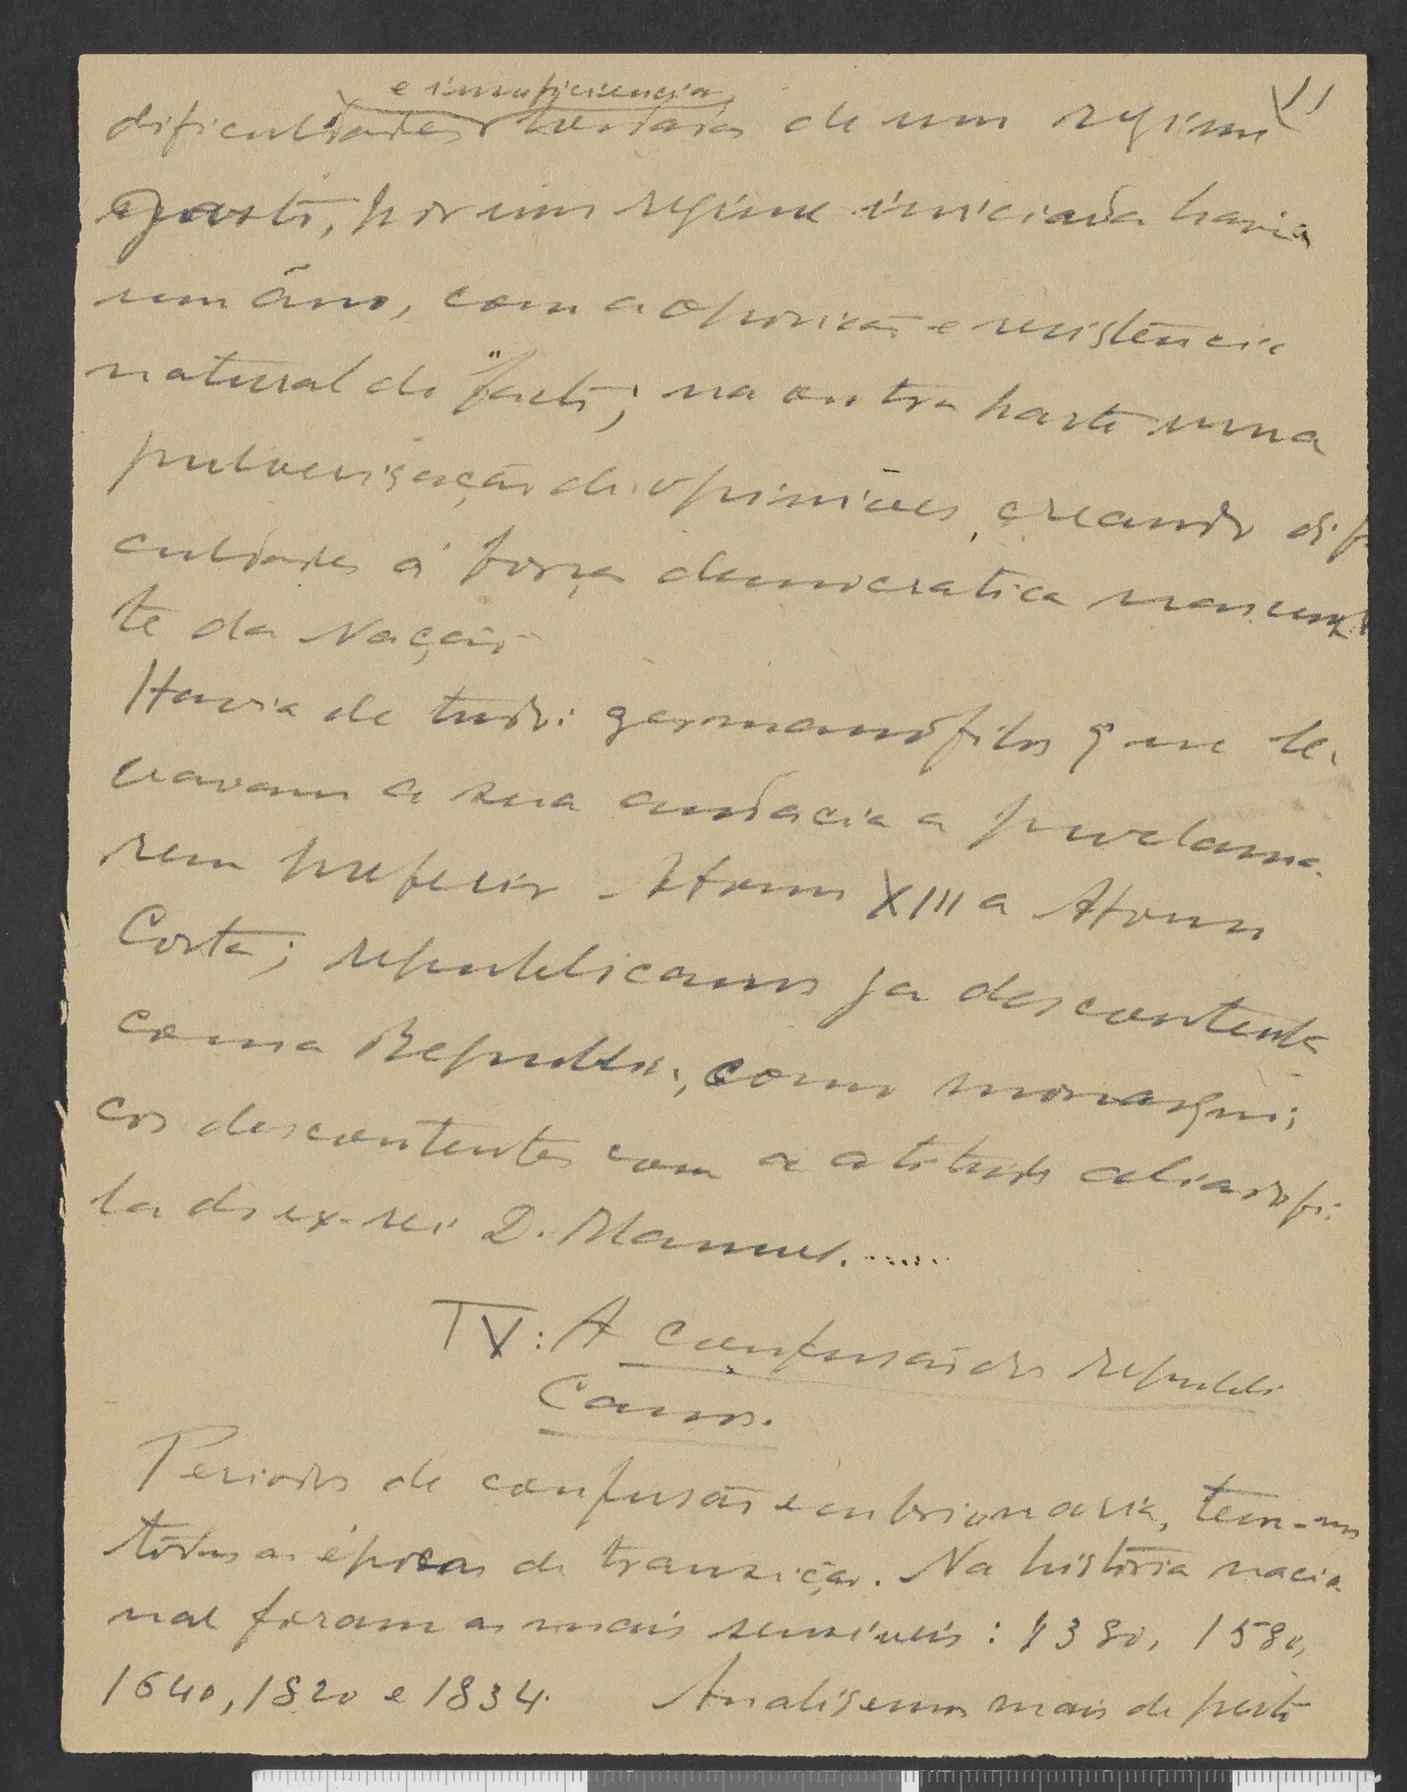 11
e insuficiencia
dificuldades herdadas de um regime
gasto, por um regime iniciado havia
um âno, com a oposição e resistencia
natural do facto; na outra parte uma
pulverisação de opiniões, creando difi
culdades á força democratica nascen
te da Nação
Havia de tudo: germanófilos que le-
vavam a sua audacia a proclama-
rem preferir Afonso XIII a Afonso
Costa; republicanos ja descontentes
com a Republica, como monarqui-
cos descontentes com a atitude aliadofi-
la do ex-rei D. Manuel.......
IV: A confusão dos republi
canos.
Periodos de confusão embrionaria, tem-nos
tôdas as épocas de transição. Na história nacio-
nal foram as mais sensiveis: 1380, 1580,
1640, 1820 e 1834. Analisemos mais de perto